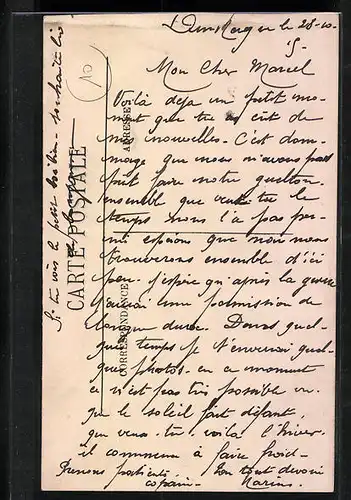 Dunkerque le 28-10-
15-
Mon Cher Marcel
Voilà déja un petit mo-
ment que tu as eut de
mes nouvelles. C'est dom-
mage que nous n'avons pas
put faire notre gueleton
ensemble que veux tu le
temps nous l'a pas per-
mi esperons que nous nous
trouverons ensemble d'ici
peu. j'espère qu'après la guerre
j'aurai une permission de
longue durée. Dans quel-
que temps je t'enverrai quel-
que photos. en ce moment
ce n'est pas très possible vu
que le soleil fait défaut.
que veux-tu voilà l'hiver.
il commence à faire froid-
Prenons patience. Ton tout dévoué
copain- Marius.
Si tu vois le petit souhaite lui
CARTE POSTALE
CORRESPONDANCE
ADRESSE